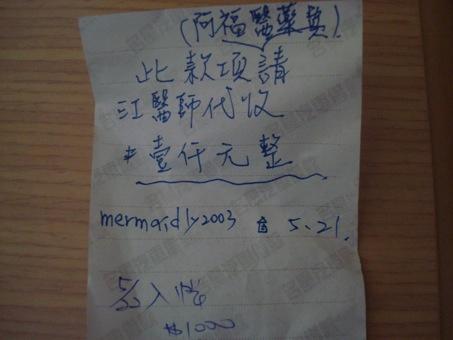 (阿福醫藥費)
此款項請
江醫師代收
#壹仟元整
mermaidly2003 5.21.
5/22入帳
$1000